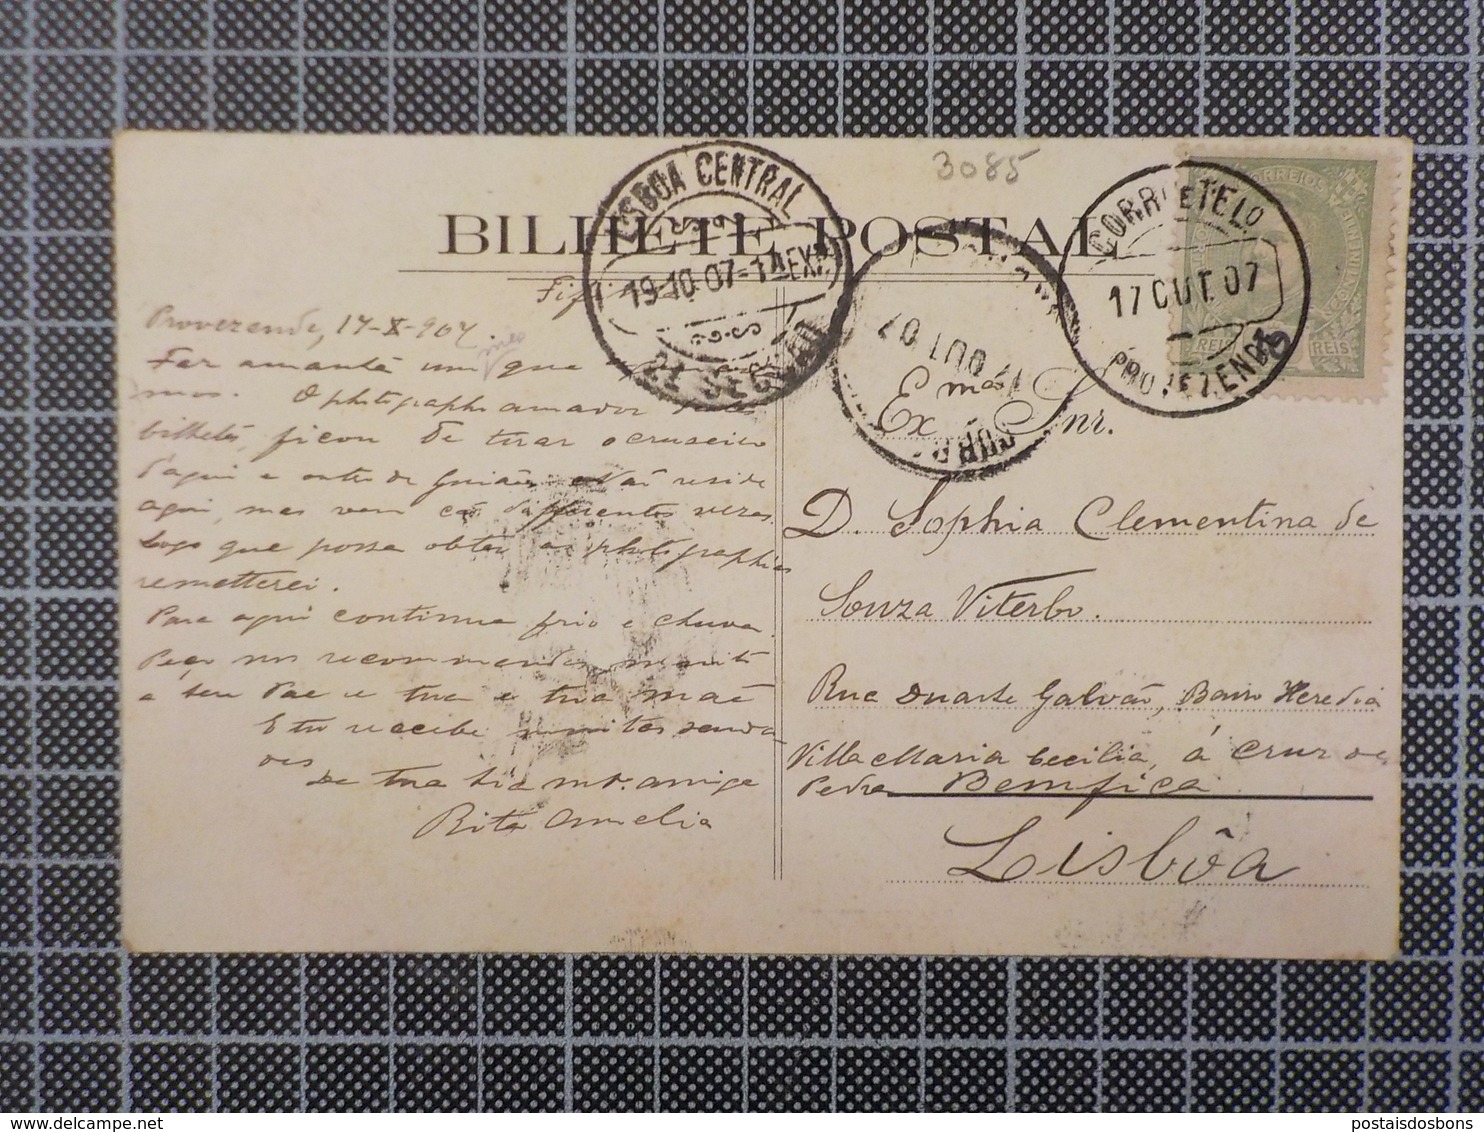 3085
BILHETE POSTAL
LISBOA CENTRAL
19-10-07-1A EXP
2A SECÇÃO
17 OUT 07
CORR
CORRO E TELO
17 OUT. 07
PROVEZENDE
CORREIOS
REIS REIS
Provezende, 17-X-907.
Faz amanhã um que
mos. O photographo amador
bilhetes, ficou de tirar o cruseiro
d'aqui e outro de Guiães. Não reside
aqui, mas vem cá differentes vezes.
Logo que possa obter as photographias
remetterei.
Para aqui continua frio e chuva.
Peço nos recommendes muito
a teu Pae e tua e tua mãe
E tu recebe muitas sauda
des
De tua tia mto. amiga
Rita Amelia
Exma Snr.
D. Sophia Clementina de
Souza Viterbo.
Rua Duarte Galvão, Bairro Heredia
Villa Maria Cecilia, á Cruz da
Pedra Bemfica
Lisbôa
postaisdosbons